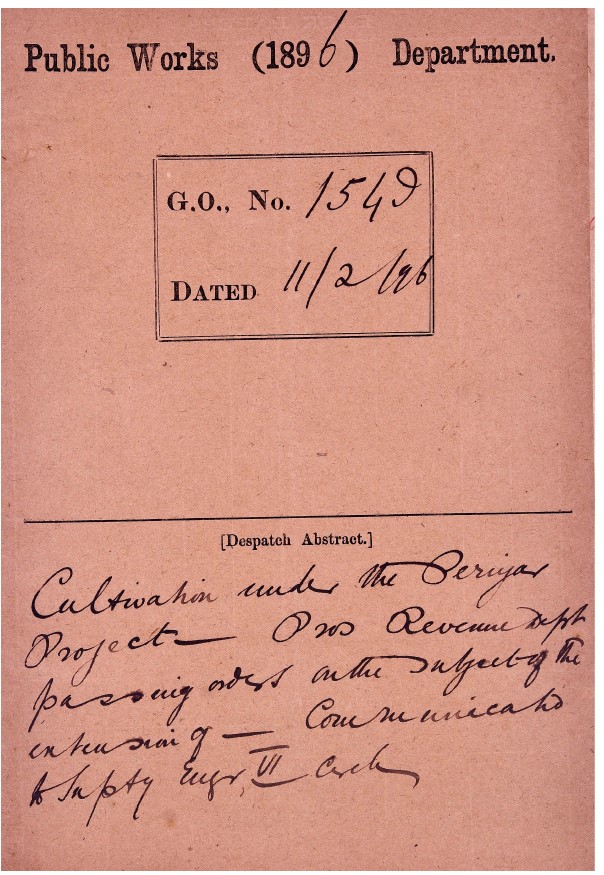 Public Works (1896) Department.
G.O., No. 154
DATED 11/2/96
[Despatch Abstract.]
Cultivation under the Periyar
Project — Pros Revenue Dept
passing orders on the subject of the
extension of — Communicated
to Suptg Engr, VI Circle